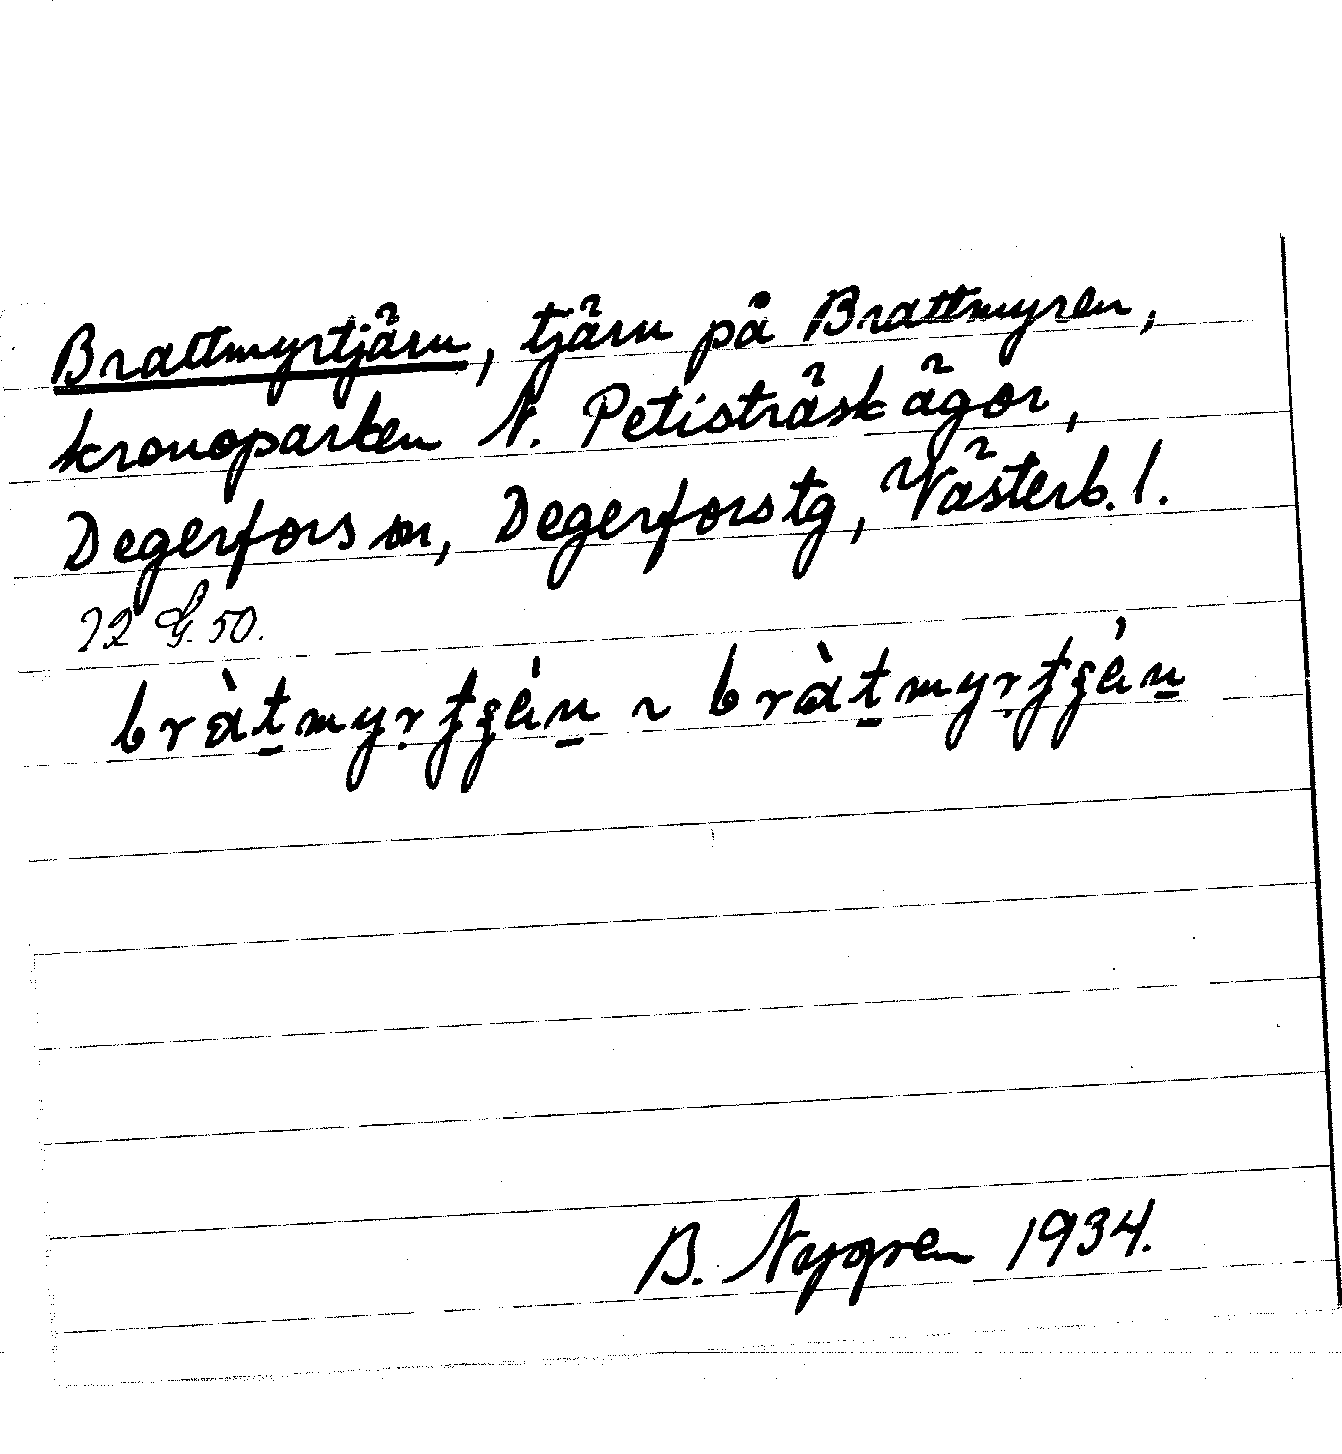 Brattmyrtjärn, tjärn på Brattmyren,
kronoparken N. Petisträsk ägor,
Degerfors sn, Degerfors tg, Västerb. l.
72 G. 50.
bràt̠myṛ ~ bràt̠myṛ
B. Nygren 1934.